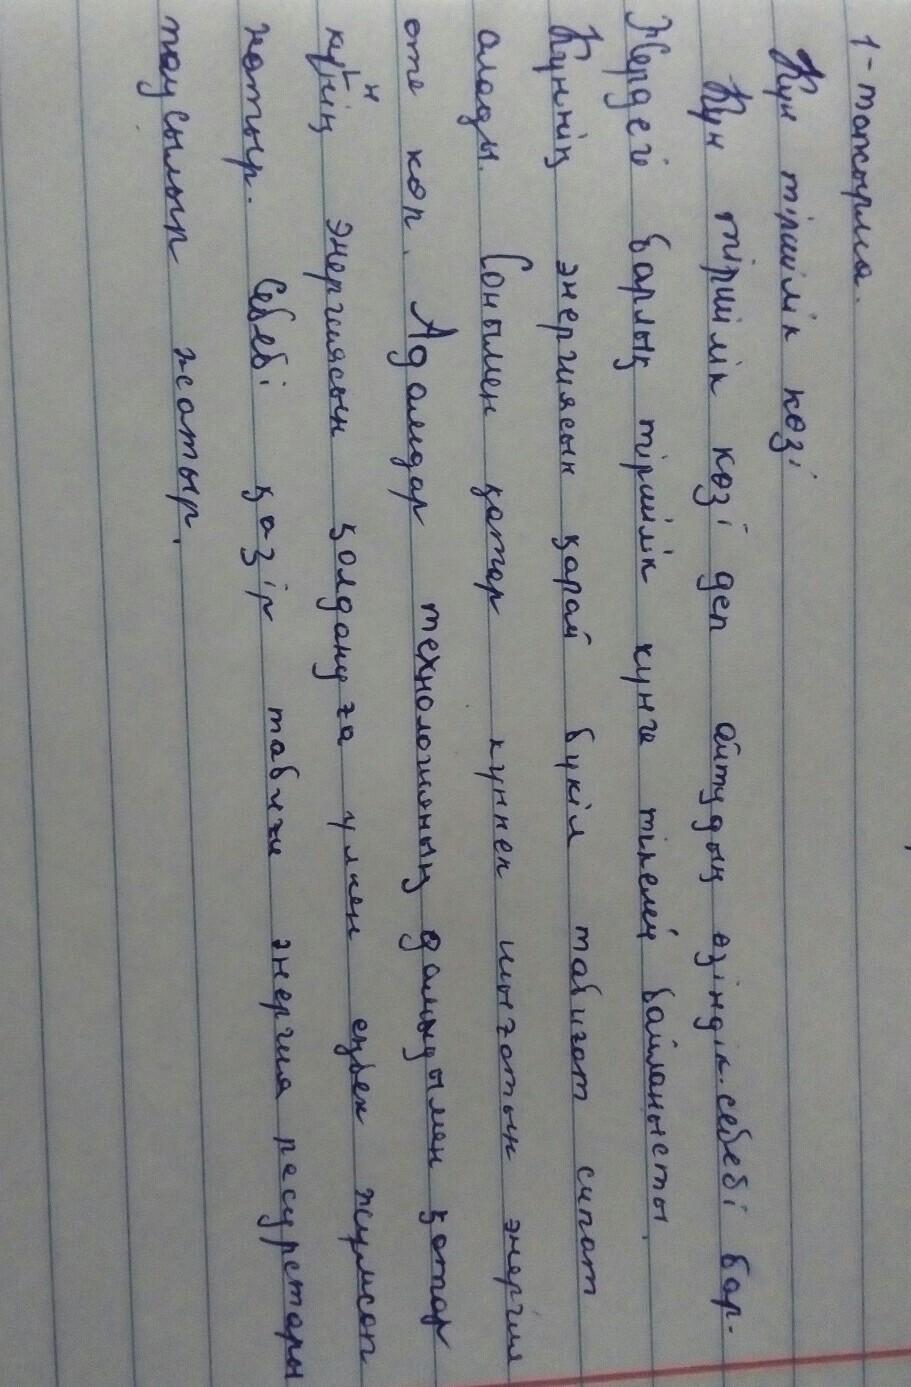 1-тапсырма.
Күн тіршілік көзі
Күн тіршілік көзі деп айтудың өзіндік себебі бар.
Жердегі барлық тіршілік күнге тікелей байланысты.
Күннің энергиясын қарай бүкіл табиғат сипат
алады. Сонымен қатар күннен шығатын энергия
өте көп. Адамдар технологияның дамыдымен қатар
күннің энергиясын қолдануға үлкен еңбек жұмсап
жатыр. Себебі қазір табиғи энергия ресурстары
таусылып жатыр.